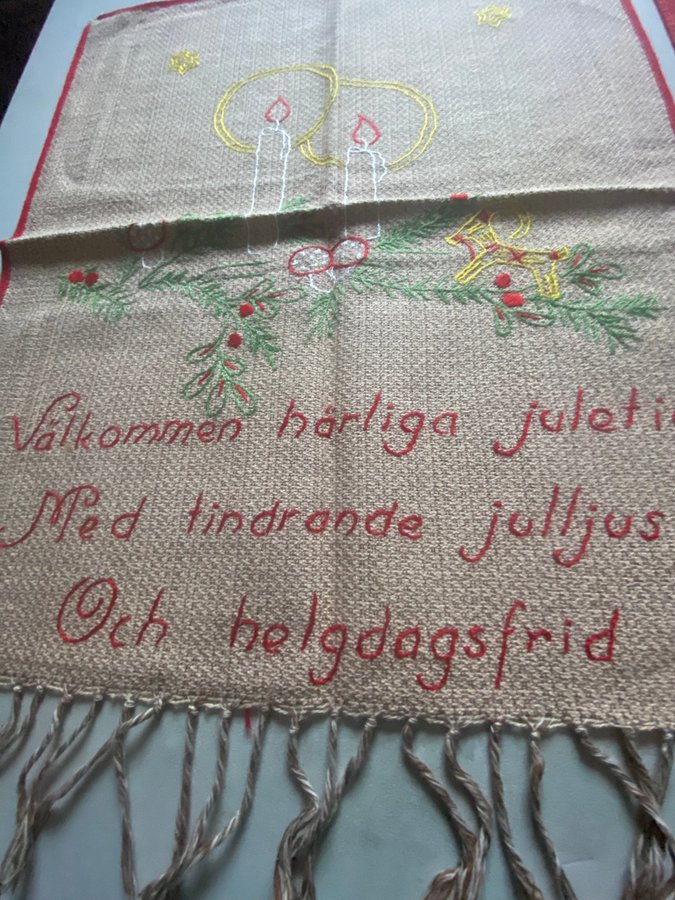 Välkommen härliga juleti
Med tindrande julljus
Och helgdagsfrid